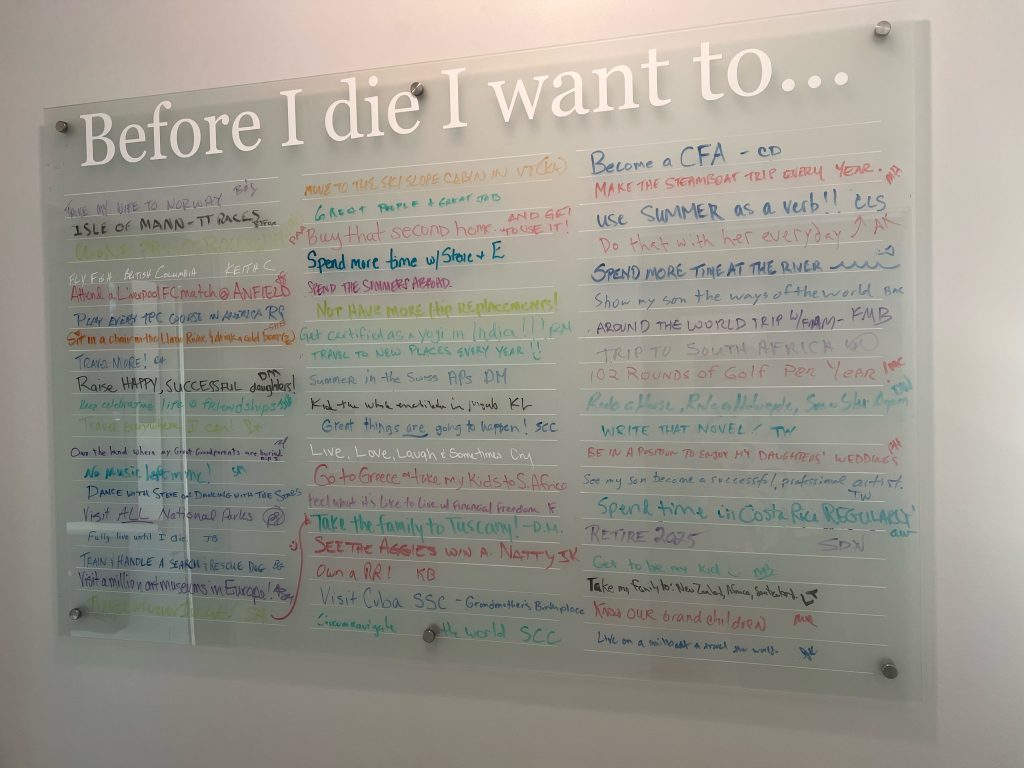 Before I die I want to...
TAKE MY WIFE TO NORWAY
ISLE OF MANN - TT RACES
FLY FISH BRITISH COLUMBIA KEITH C
Attend a Liverpool FC match @ ANFIELD
PLAY EVERY TPC COURSE IN AMERICA RG
Sit in a chair in the Llano River & drink a cold beer
TRAVEL MORE!
Raise HAPPY, SUCCESSFUL daughters! DM
Keep celebrating life & friendships
Travel everywhere I can!
Own the land where my Great Grandparents are buried
No music left in me!
DANCE WITH STEVE ON DANCING WITH THE STARS
Visit ALL National Parks
Fully live until I die. JB
TRAIN & HANDLE A SEARCH & RESCUE DOG BG
Visit a million art museums in Europe!
MOVE TO THE SKI SLOPE CABIN IN VT (KA)
GREAT PEOPLE & GREAT JOB
Buy that second home. AND GET TO USE IT!
Spend more time w/ Steve & E
SPEND THE SUMMERS ABROAD.
NOT HAVE MORE Hip REPLACEMENTS!
Get certified as a yogi in India!!! RM
TRAVEL TO NEW PLACES EVERY YEAR!!
SUMMER in the SWISS APs DM
Great things are going to happen! SCC
LIVE, LOVE, LAUGH & SOMETIMES CRY
Go to Greece & Take my Kids to S. Africa
Feel what it's Like to Live w/ Financial Freedom
Take the family to Tuscany! - D.M.
SEE THE AGGIES WIN A NATTY JK
Own a RR! KB
VISIT CUBA SSC - Grandmother's Birthplace
Circumnavigate the world SCC
Become a CFA - CD
MAKE THE STEAMBOAT TRIP EVERY YEAR.
use SUMMER as a verb!! CLS
Do that with her everyday ↑ AK
SPEND MORE TIME AT THE RIVER
Show my son the ways of the world
AROUND THE WORLD TRIP W/ FAM - FMB
TRIP TO SOUTH AFRICA
102 ROUNDS OF GOLF PER YEAR!
WRITE THAT NOVEL! TW
BE IN A POSITION TO ENJOY MY DAUGHTERS' WEDDINGS
See my son become a successful, professional artist. TW
Spend time in Costa Rica REGULARLY
RETIRE 2025 SDN
Get to be my kid
Take my family to: New Zealand, Africa,
KNOW OUR grandchildren
Live on a sailboat & travel the world.